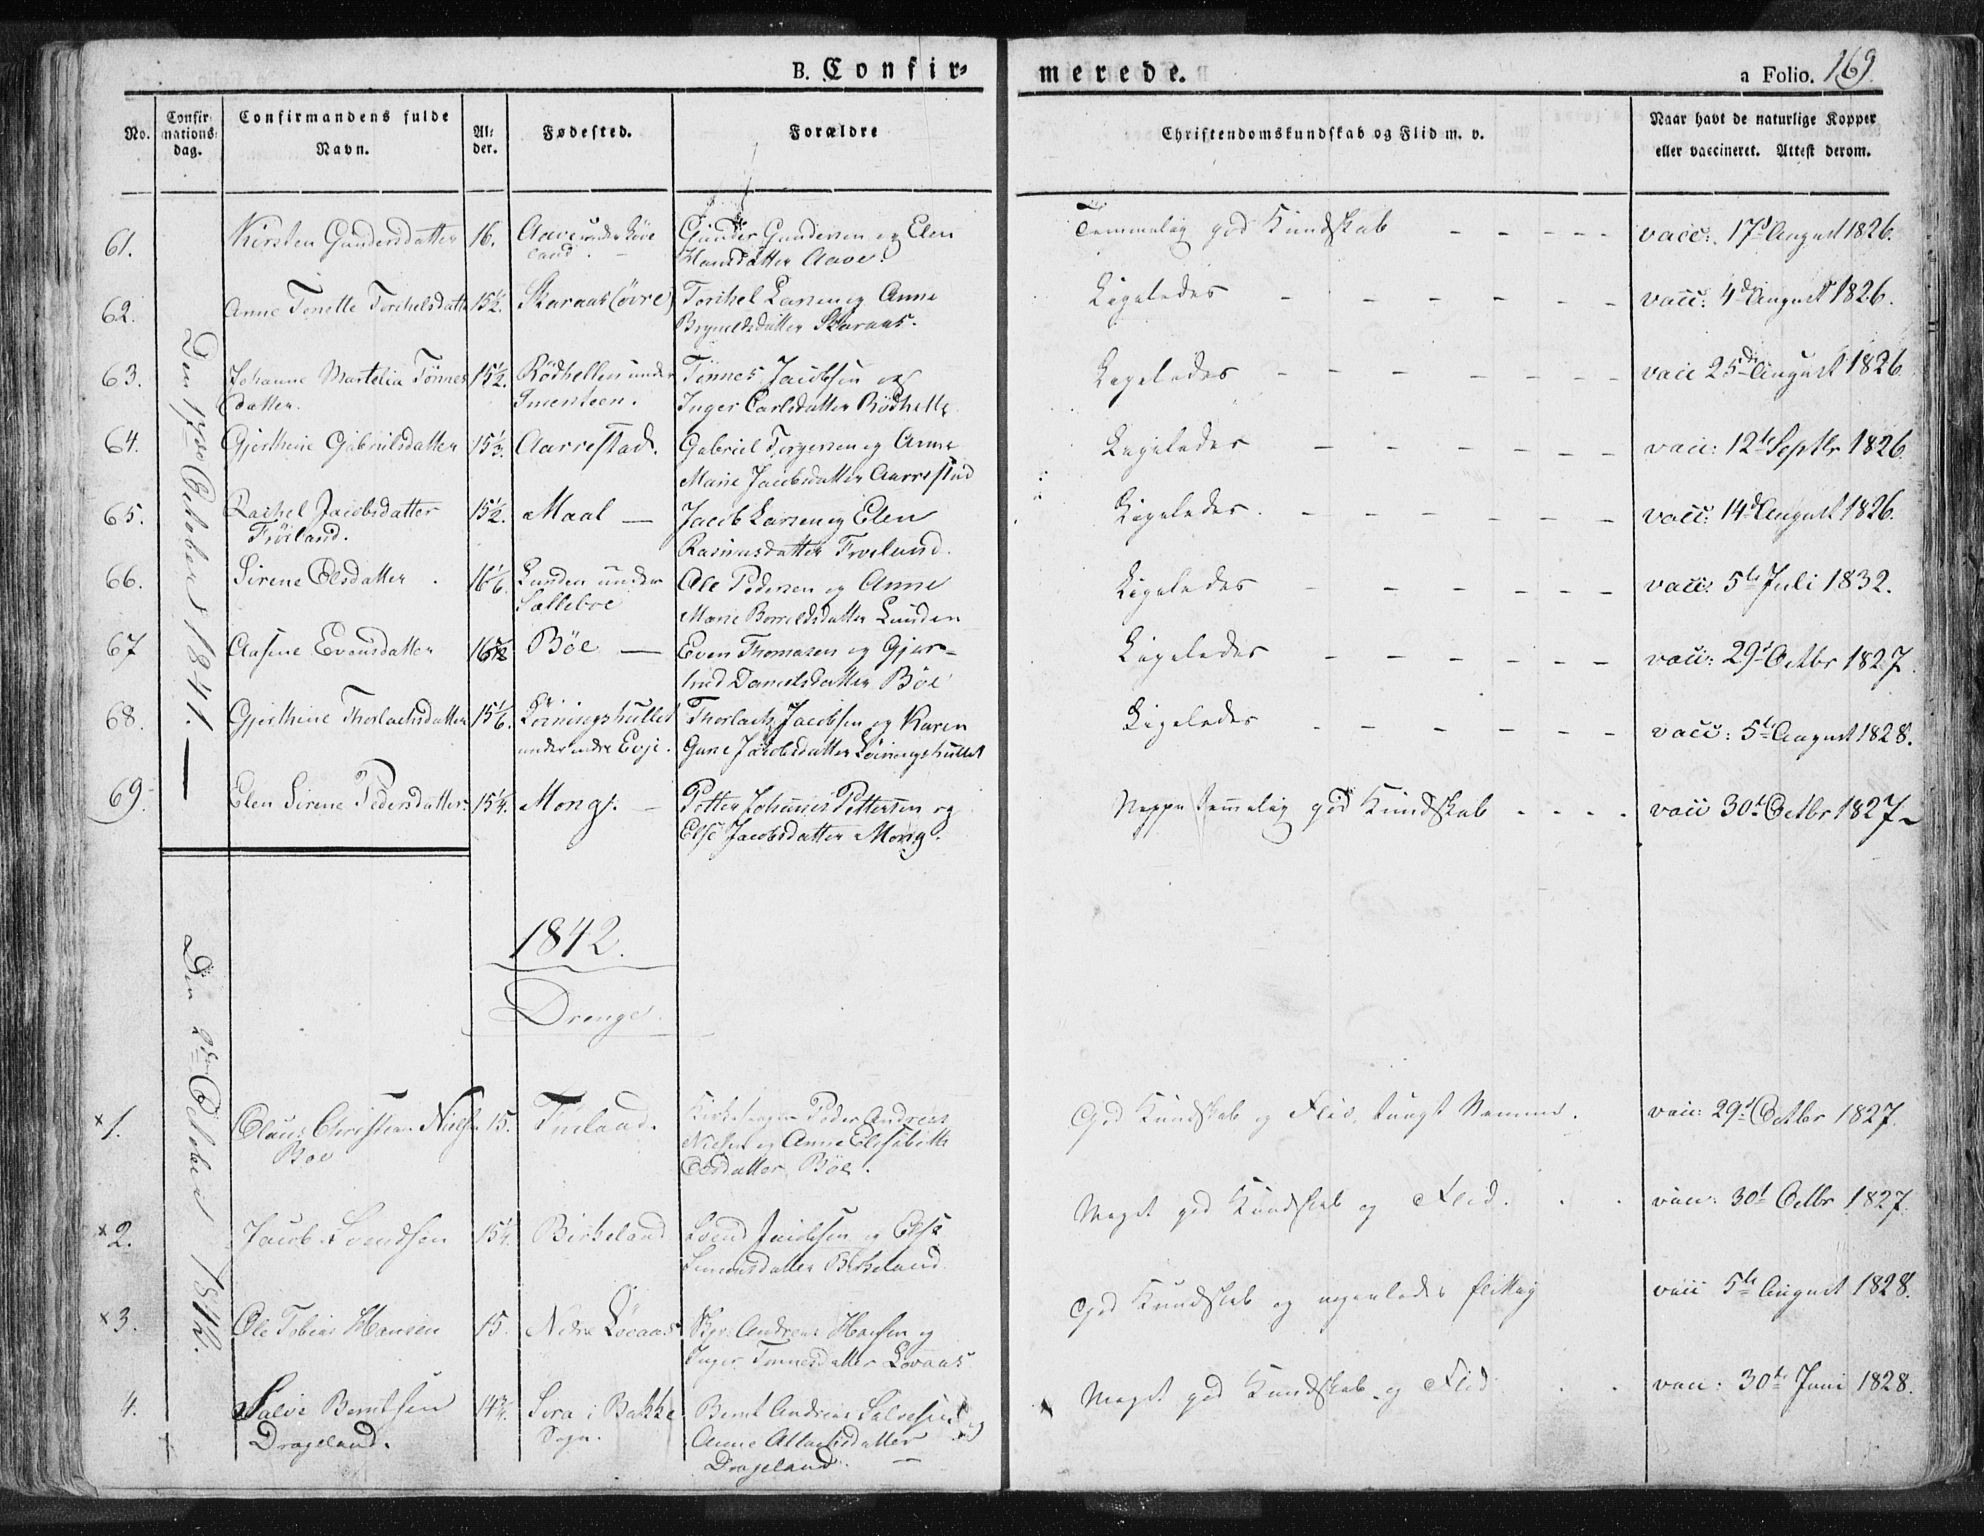 B. Confir-
merede.
a Folio. 169.
No.
Confir-
mations-
dag.
Confirmandens fulde
Navn.
Al-
der.
Fødested.
Forældre
Christendomskundskab og Flid m. v.
Naar havt de naturlige Kopper
eller vaccineret. Attest derom.
Den 17de October 1841.
61. Kirsten Gundersdatter 16. Aave under
land. Gunder Gundersen og Elen
Hansdatter Aave.
Temmelig god Kundskab vacc: 17d August 1826.
62. Anne Tonette Torchelsdatter 15½. Skaraas (øvre) Torchel Larsen og Anne
Bryneldsdatter Skaraas.
Ligeledes vacc: 4de August 1826.
63. Johanne Martelia Tønnes
datter. 15½. Rødhellen under
Smenteen. Tønnes Jacobsen og
Inger Carlsdatter Rødhelle
Ligeledes vacc 25de August 1826
64. Gjerthine Gabrielsdatter 15½. Aarrestad. Gabriel Torgersen og Anne
Marie Jacobsdatter Aarrestad
Ligeledes vacc: 12te Septbr 1826.
65. Rachel Jacobsdatter
Frøiland. 15½. Maal — Jacob Larsen og Elen
Rasmusdatter Froiland.
Ligeledes vacc: 14d August 1826.
66. Sirene Olsdatter 16 Lunden under
Sælleboe Ole Pedersen og Anne
Marie Lunden
Ligeledes vacc: 5te Juli 1832.
67 Aasine Evensdatter Bøe — Even Thomasen og Gjer-
trud Danielsdatter Bøe
Ligeledes vacc: 29d Octbr 1827.
68. Gjerthine Thorlachsdatter 15 Løiningshullet
under indre Evje. Thorlach Jacobsen og Karen
Gune Jacobsdatter Løiningshullet
Ligeledes vacc: 5te August 1828.
69. Elen Sirene Pedersdatter 15¼. Mong. — Petter Johannes Pettersen og
Else Jacobsdatter Mong.
Neppe temmelig god Kundskab vacc 30d Octbr 1827
1842.
Drenge.
Den 2den October 1842.
x 1. Claus Christian Niels
Boe 15. Kirkesanger Peder Andreas
Nielsen og Anne Elisabeth
Olsdatter Bøe.
God Kundskab og Flid, tungt Nemme. vacc: 29d Octbr 1827.
x 2. Jacob Svendsen 15¼. Birkeland Svend Jacobsen og Else
Simonsdatter Birkeland.
Meget god Kundskab og Flid. vacc: 30d Octbr 1827.
x 3. Ole Tobias Hansen 15. Nedre Lovaas Andreas Hansen og
Inger Tønnesdatter Lovaas
God Kundskab og flittig vacc 5te August 1828.
4. Salve Berntsen
Drageland. 14¾. Sira i Bakke
Sogn. Bernt Andreas Salvesen og
Anne Attachsdatter
Drageland.
Meget god Kundskab og Flid vacc: 30te Juni 1828.